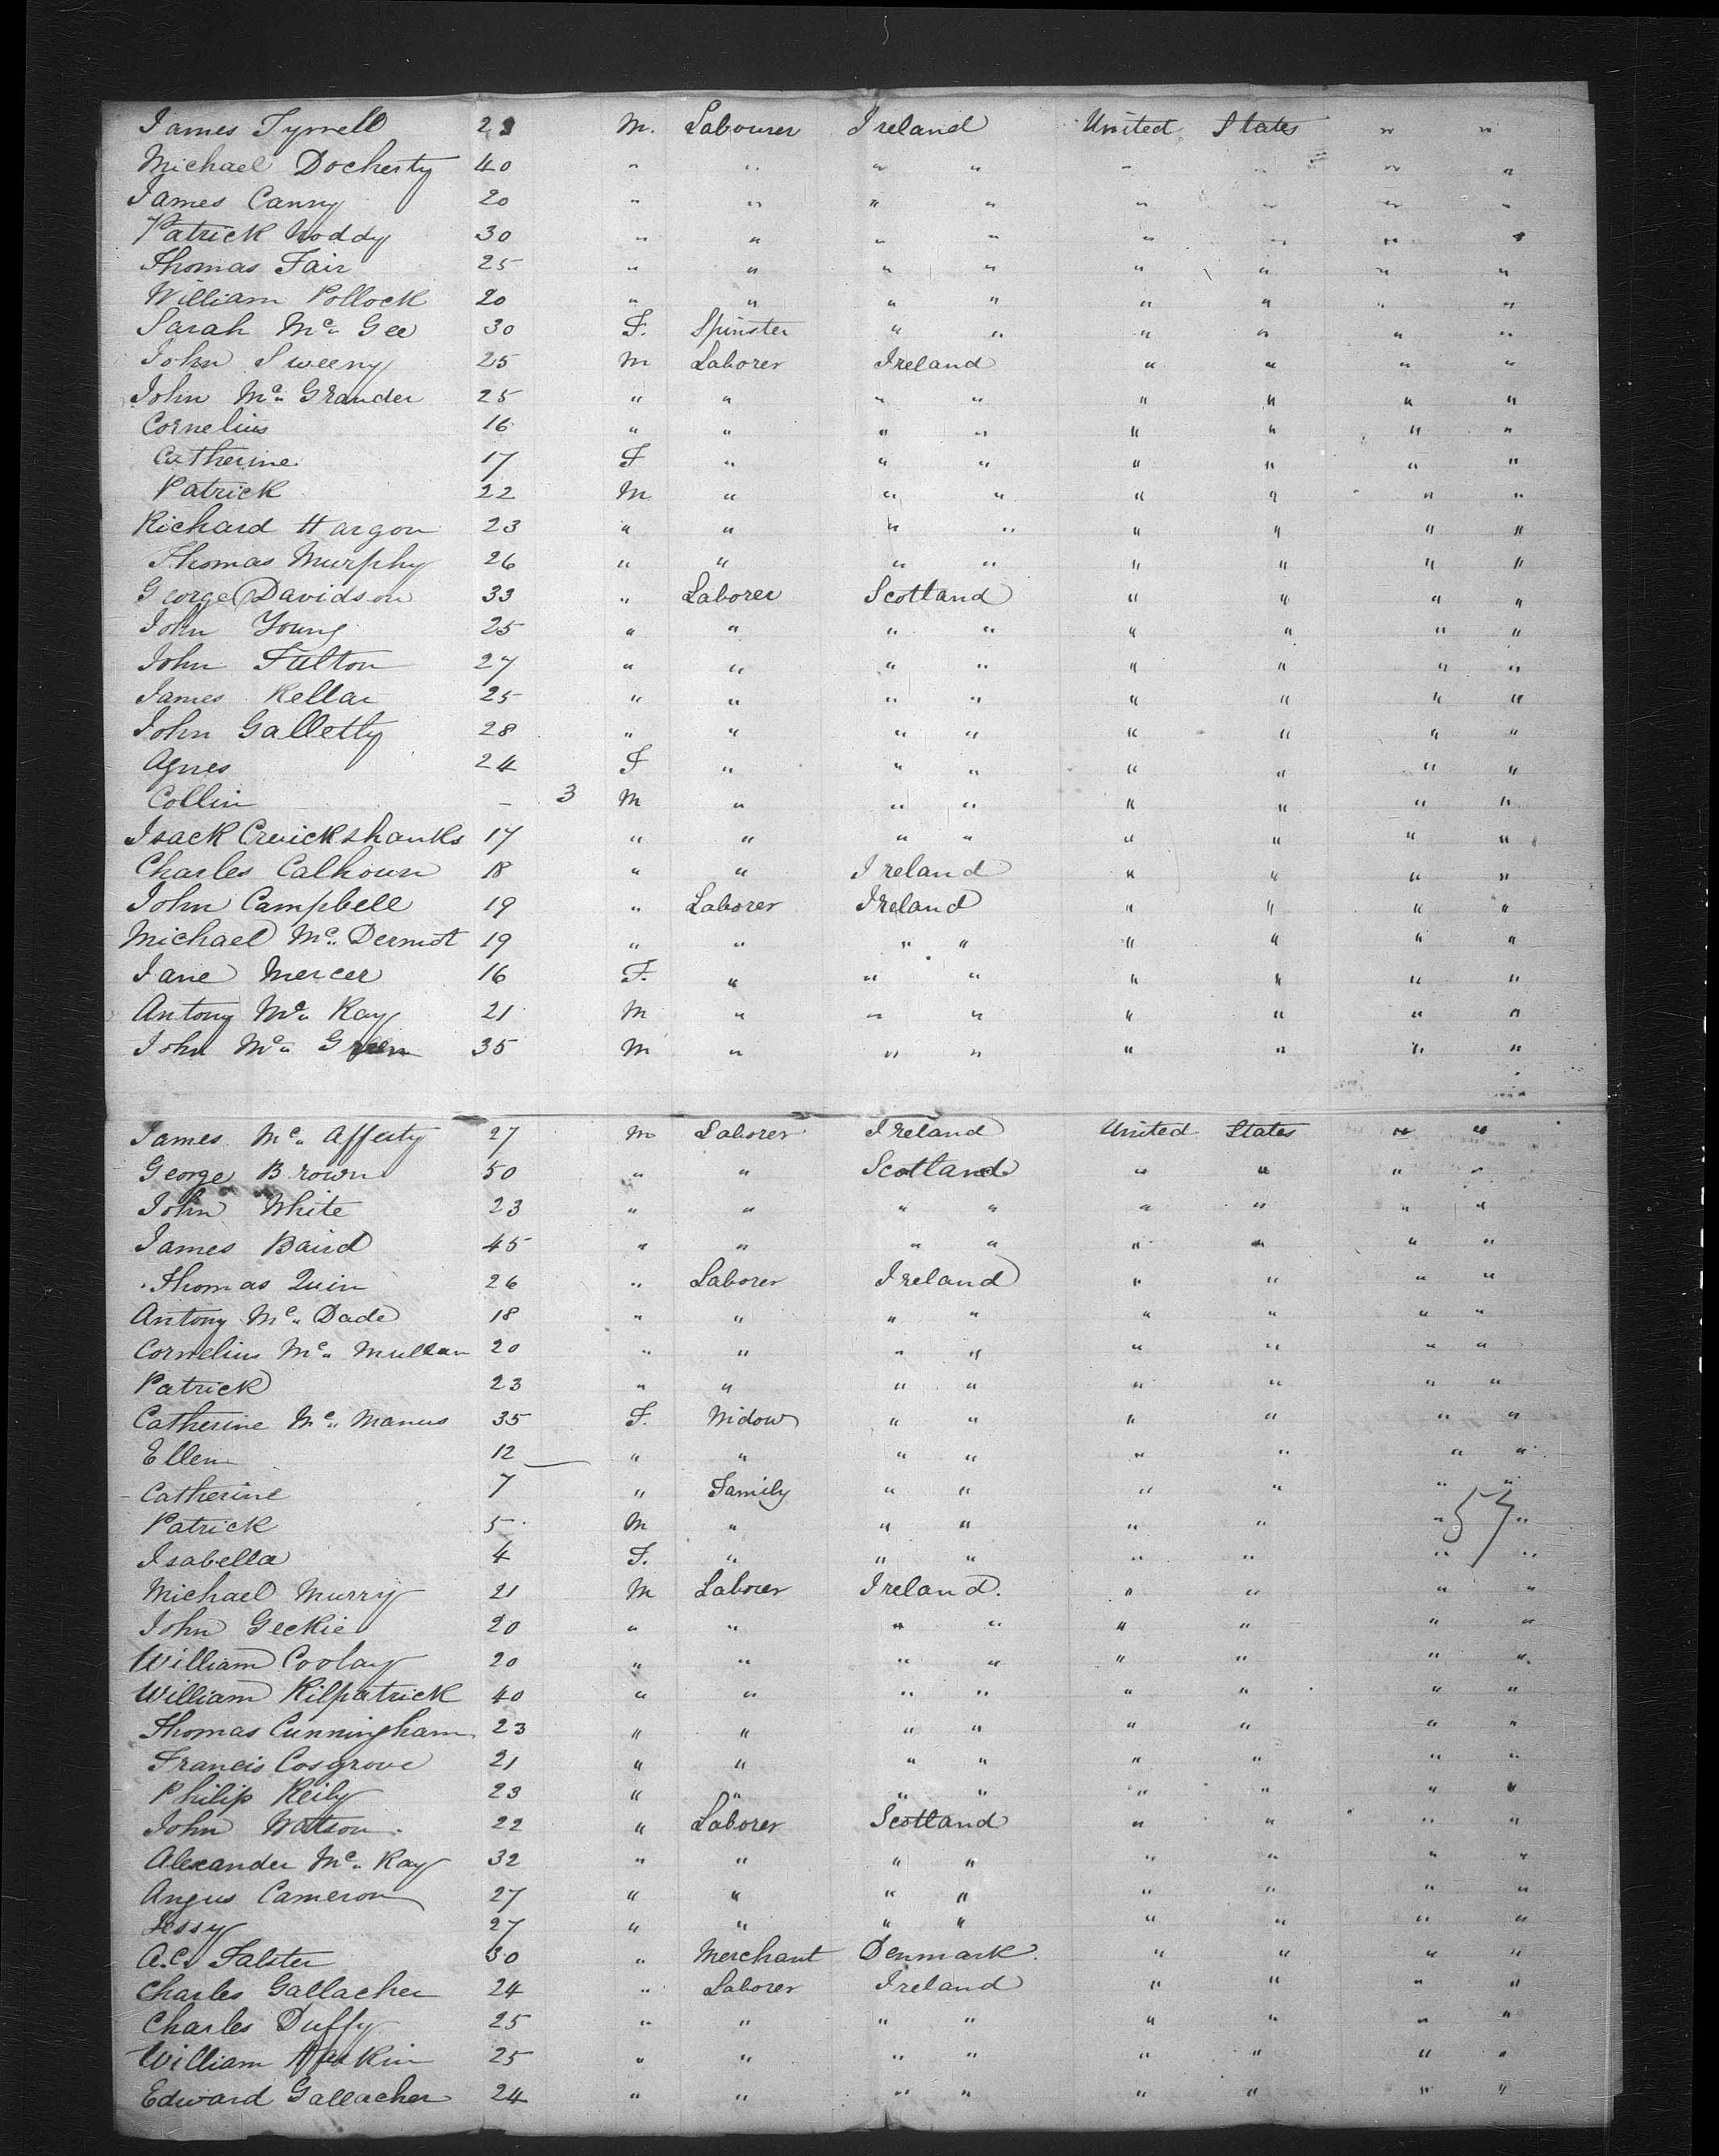 James Tyrrell 28 M. Labourer Ireland United States " "
Michael Docherty 40 " " " " " " " "
James Canny 20 " " " " " " " "
Patrick Noddy 30 " " " " " " " "
Thomas Fair 25 " " " " " " " "
William Pollock 20 " " " " " " " "
Sarah Mc Gee 30 F. Spinster " " " " " "
John Sweeny 25 M Laborer Ireland " " " "
John Mc Grander 25 " " " " " " " "
Cornelius 16 " " " " " " " "
Catherine 17 F " " " " " " "
Patrick 22 M " " " " " " "
Richard Hargon 23 " " " " " " " "
Thomas Murphy 26 " " " " " " " "
George Davidson 33 " Laborer Scotland " " " "
John Young 25 " " " " " " " "
John Fulton 27 " " " " " " " "
James Kellar 25 " " " " " " " "
John Galletly 28 " " " " " " " "
Agnes 24 F " " " " " " "
Collin – 3 M " " " " " " "
Isack Cruickshanks 17 " " " " " " " "
Charles Calhoun 18 " " Ireland " " " "
John Campbell 19 " Laborer Ireland " " " "
Michael Mc Dermot 19 " " " " " " " "
Jane Mercer 16 F. " " " " " " "
Antony Mc Kay 21 M " " " " " " "
John Mc Green 35 M " " " " " " "
James Mc Afferty 27 M Laborer Ireland United States " "
George Brown 50 " " Scotland " " " "
John White 23 " " " " " " " "
James Baird 45 " " " " " " " "
Thomas Quin 26 " Laborer Ireland " " " "
Antony Mc Dade 18 " " " " " " " "
Cornelius Mc Mullan 20 " " " " " " " "
Patrick 23 " " " " " " " "
Catherine Mc Manus 35 F. Widow " " " " " "
Ellen 12 " " " " " " " "
Catherine 7 " Family " " " " " "
Patrick 5 M " " " " " " " 57
Isabella 4 F. " " " " " " "
Michael Murry 21 M Laborer Ireland. " " " "
John Geckie 20 " " " " " " " "
William Coolay 20 " " " " " " " "
William Kilpatrick 40 " " " " " " " "
Thomas Cunningham 23 " " " " " " " "
Francis Cosgrove 21 " " " " " " " "
Philip Reily 23 " " " " " " " "
John Watson 22 " Laborer Scotland " " " "
Alexander Mc Kay 32 " " " " " " " "
Angus Cameron 27 " " " " " " " "
Jessy 27 " " " " " " " "
A.C. Falster 30 " Merchant Denmark. " " " "
Charles Gallacher 24 " Laborer Ireland " " " "
Charles Duffy 25 " " " " " " " "
William 25 " " " " " " " "
Edward Gallacher 24 " " " " " " " "